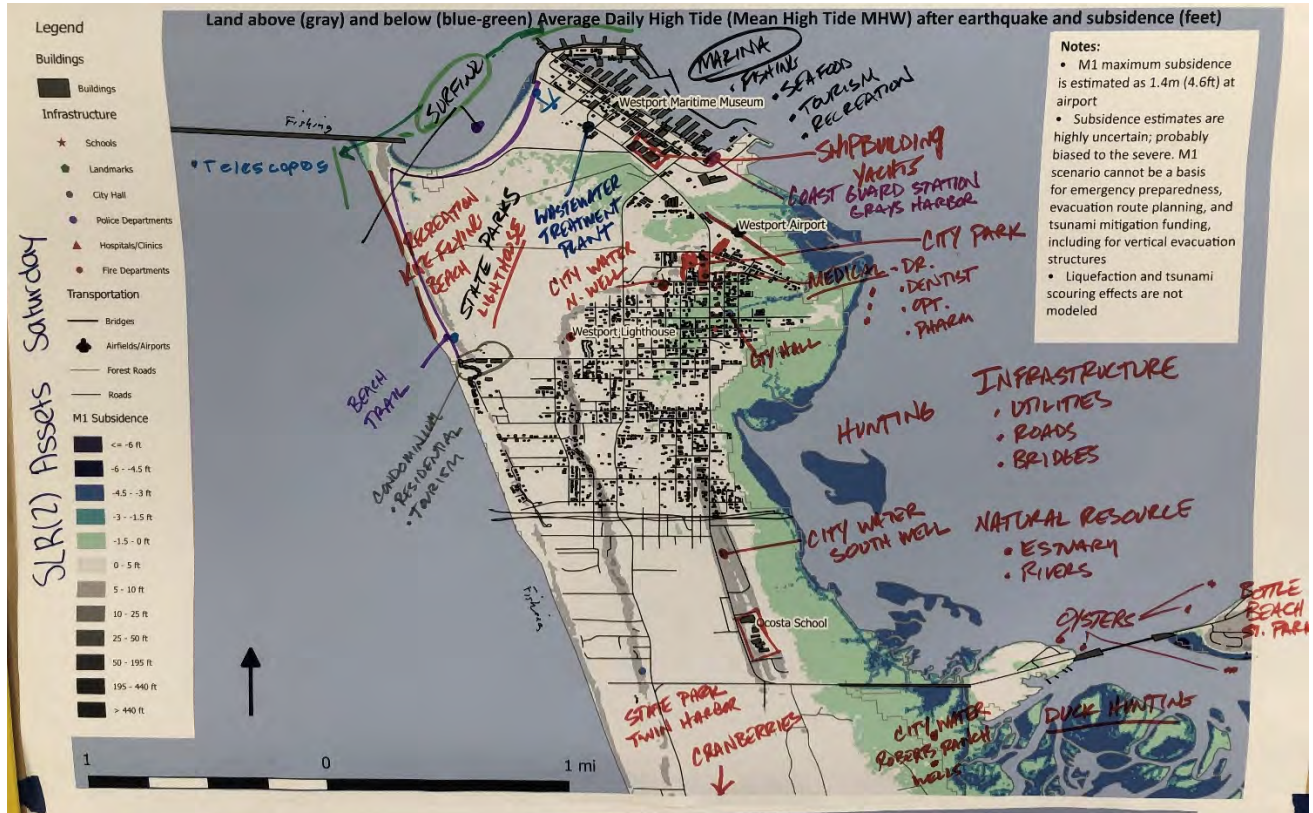 Land above (gray) and below (blue-green) Average Daily High Tide (Mean High Tide MHW) after earthquake and subsidence (feet)
Legend
Buildings
Buildings
Infrastructure
Schools
Landmarks
City Hall
Police Departments
Hospitals/Clinics
Fire Departments
Transportation
Bridges
Airfields/Airports
Forest Roads
Roads
M1 Subsidence
<= -6 ft
-6 - -4.5 ft
-4.5 - -3 ft
-3 - -1.5 ft
-1.5 - 0 ft
0 - 5 ft
5 - 10 ft
10 - 25 ft
25 - 50 ft
50 - 195 ft
195 - 440 ft
> 440 ft
SLR(2) Assets Saturday
Notes:
• M1 maximum subsidence
is estimated as 1.4m (4.6ft) at
airport
• Subsidence estimates are
highly uncertain; probably
biased to the severe. M1
scenario cannot be a basis
for emergency preparedness,
evacuation route planning, and
tsunami mitigation funding,
including for vertical evacuation
structures
• Liquefaction and tsunami
scouring effects are not
modeled
Fishing
SURFING
• Telescopes
MARINA
• FISHING
• SEAFOOD
• TOURISM
• RECREATION
Westport Maritime Museum
SHIPBUILDING
YACHTS
COAST GUARD STATION
GRAYS HARBOR
Westport Airport
CITY PARK
MEDICAL - DR.
• DENTIST
• OPT.
• PHARM
RECREATION
KITE FLYING
BEACH
STATE PARKS
LIGHTHOUSE
WASTEWATER
TREATMENT
PLANT
CITY WATER
N. WELL
Westport Lighthouse
CITY HALL
BEACH
TRAIL
CONDOMINIUM
• RESIDENTIAL
• TOURISM
HUNTING
INFRASTRUCTURE
• UTILITIES
• ROADS
• BRIDGES
CITY WATER
SOUTH WELL
NATURAL RESOURCE
• ESTUARY
• RIVERS
Fishing
Ocosta School
OYSTERS
BOTTLE
BEACH
ST. PARK
STATE PARK
TWIN HARBOR
CRANBERRIES
CITY WATER
ROBERTS RANCH
WELLS
DUCK HUNTING
1 0 1 mi